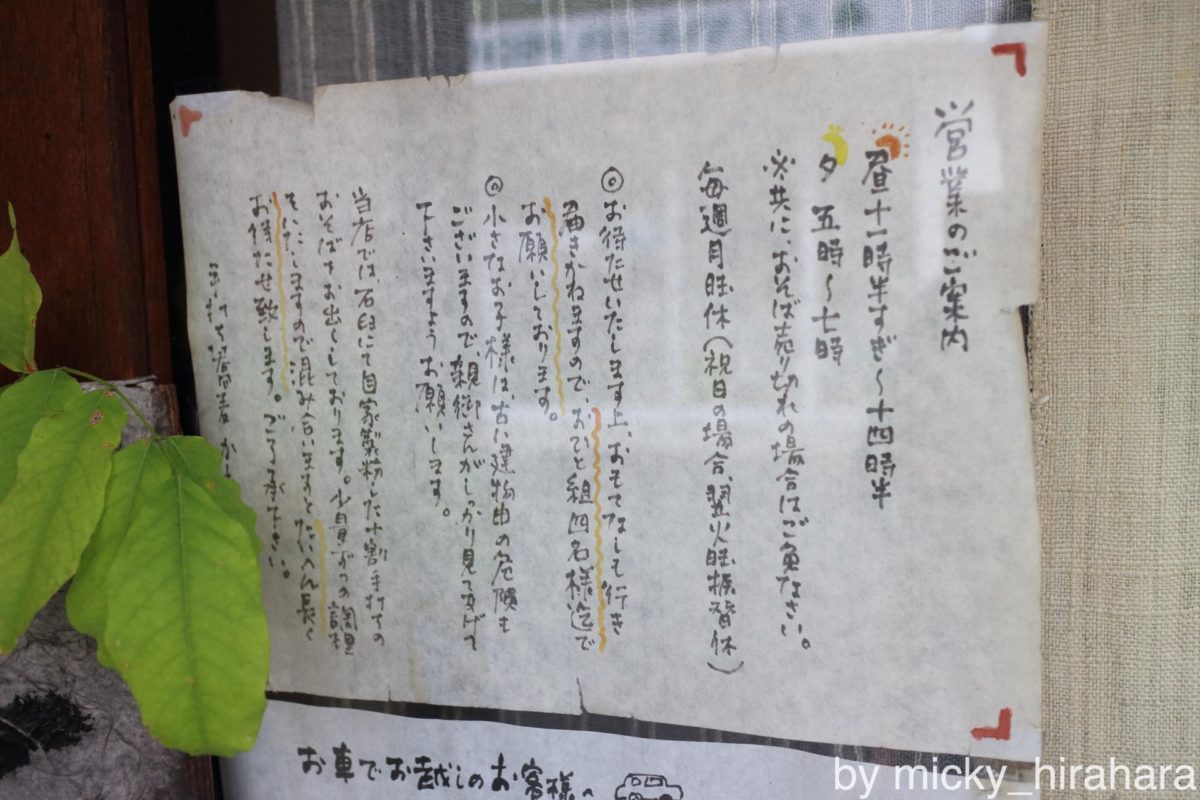 営業のご案内
昼十一時半すぎ〜十四時半
夕 五時〜七時
※共に、おそば売り切れの場合はご免なさい。
毎週月曜休(祝日の場合、翌火曜振替休)
◎お待たせいたします上、おもてなしも行き
届きかねますので、おひと組四名様迄で
お願いしております。
◎小さなお子様は、古い建物由の危険も
ございますので、親御さんがしっかり見て あげて
下さいますよう お願いします。
当店では、石臼にて自家製粉した十割手打ての
おそばをお出ししております。少量ずつの
いたしますので混み合いますと たいへん長く
お待たせ致します。ご了承下さい。
お車でお越しのお客様へ
by micky_hirahara